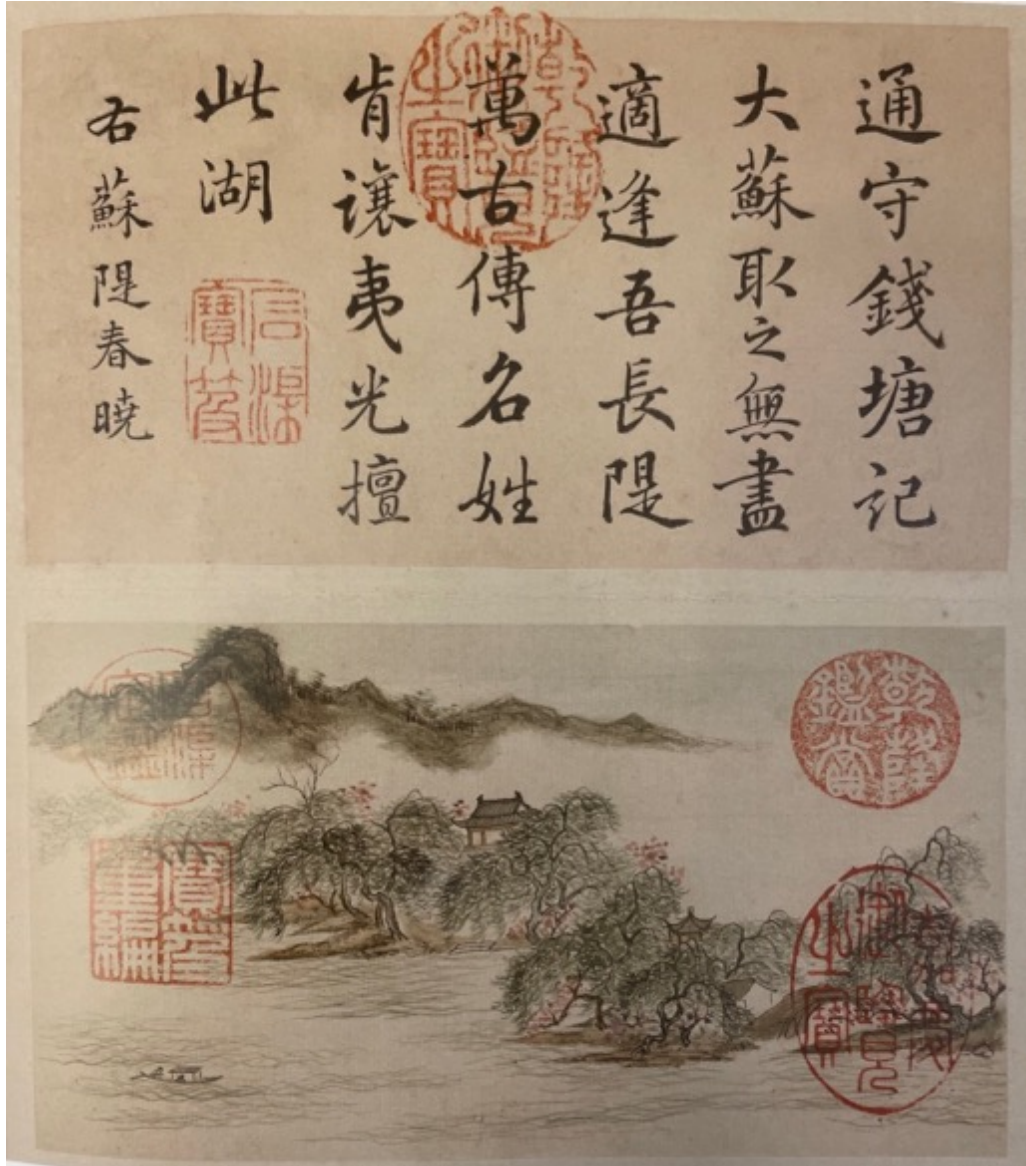 通守錢塘記
大蘇取之無盡
適逢吾長隄
萬古傳名姓
肯讓夷光擅
此湖
右蘇隄春曉
乾隆御覽之寶
石渠寶笈
石渠定鑑
寶笈重編
乾隆鑑賞
嘉慶御覽之寶